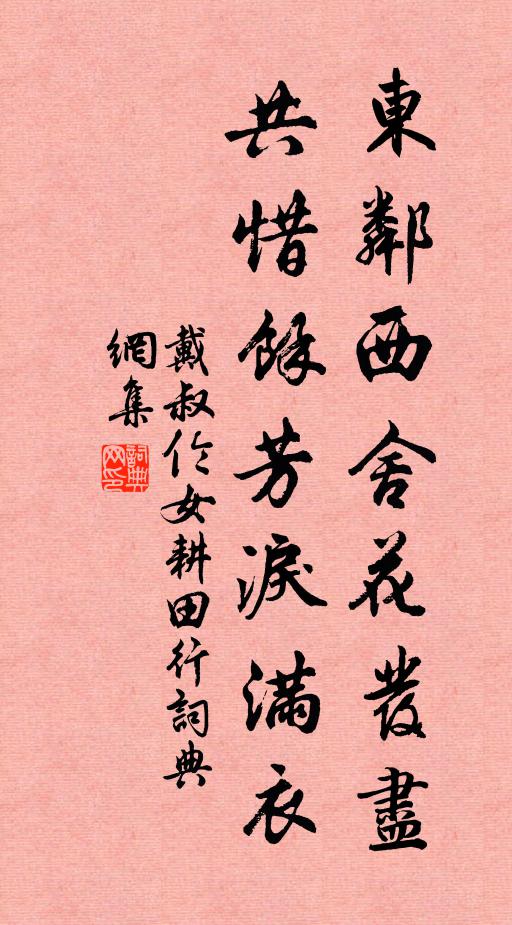 東鄰西舍花發盡
共惜餘芳淚滿衣
戴叔倫女耕田行詞典
網集
詞典
网印